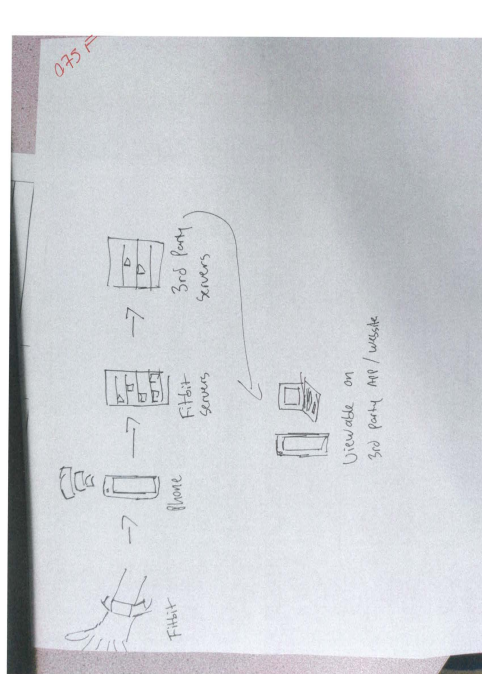 075 F
Fitbit
Phone
Fitbit
servers
3rd Party
servers
Viewable on
3rd party APP / website